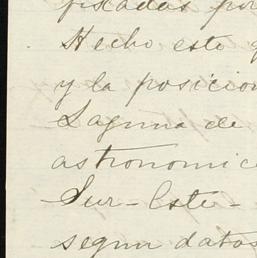 fixadas por
Hecho este q
y la posicion
Laguna de
astronomic
Sur-Este-
segun datos